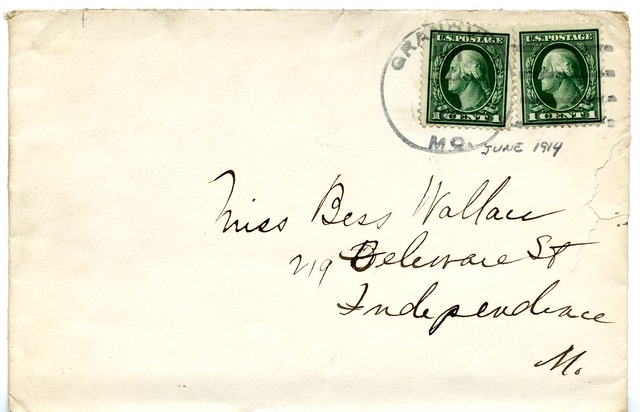 GRANDVIEW
MO.
U.S. POSTAGE
1 CENT 1
U.S. POSTAGE
1 CENT 1
JUNE 1914
Miss Bess Wallace
219 Deleware St
Independence
Mo.